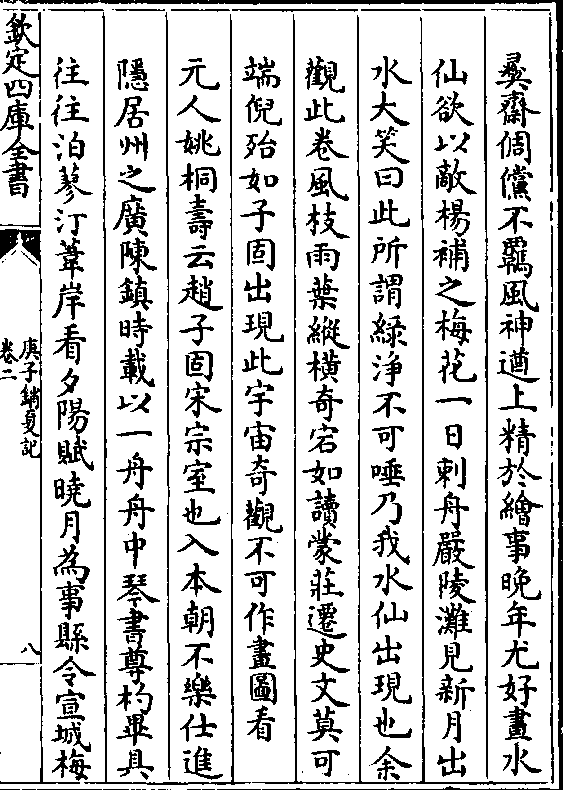 彞齋倜儻不羈風神遒上精於繪事晚年尤好畫水
仙欲以敵楊補之梅花一日刺舟嚴陵灘見新月出
水大笑曰此所謂綠淨不可唾乃我水仙出現也余
觀此卷風枝雨葉縱横奇宕如讀蒙莊遷史文莫可
端倪殆如子固出現此宇宙奇觀不可作畫圖看
元人姚桐壽云趙子固宋宗室也入本朝不樂仕進
隱居州之廣陳鎮時載以一舟舟中琴書尊杓畢具
往往泊蓼汀葦岸看夕陽賦曉月為事縣令宣城梅
欽定四庫全書
庚子銷夏記
卷二
八